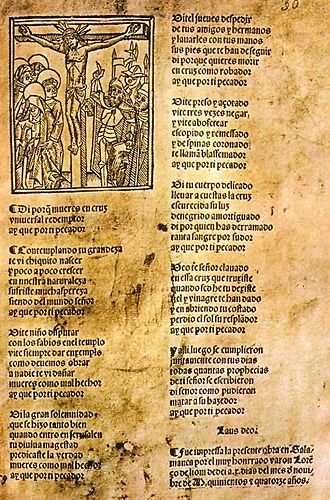 30
Di porq̃ mueres en cruz
vniuersal redemptor
ay que por ti pecador
Contemplando tu grandeza
te vi chiquito nascer
y poco a poco crescer
en nuestra naturaleza
sufriste mucha aspereza
siendo del mundo señor
ay que por ti pecador
Uite niño disputar
con los sabios en el templo
vite siempre dar enxemplo
como deuemos obrar
a nadie te vi dañar
mueres como mal hechor
ay que por ti pecador
Ui la gran solennidad
que se hizo tanto bien
quando entro en jerusalen
tu diuina magestad
predicaste la verdad
mueres como mal hechor
ay que por ti pecador
Uite el jueues despedir
de tus amigos y hermanos
y lauarles con tus manos
sus pies que te han de seguir
di porque quieres morir
en cruz como robador
ay que por ti pecador
Uite preso y açotado
vite tres vezes negar
y vite abofetear
escopido y remessado
y de spinas coronado
te llamã blasfemador
ay que por ti pecador
Ui tu cuerpo delicado
lleuar a cuestas la cruz
escurecida su luz
denegrido amortiguado
di por quien has derramado
tanta sangre por sudor
ay que por ti pecador
Ueo te señor clauado
en essa cruz que truxiste
quando sed he tu dexiste
fiel y vinagre te han dado
y en abriendo tu costado
perdio el sol su resplãdor
ay que por ti pecador
Y alli luego se cumplieron
juntamente con tus dias
todas quantas prophecias
de ti señor se escriuieron
di señor como pudieron
matar a su hazedor
ay que por ti pecador
Laus deo
Fue impressa la presente obra en Salamanca por el muy honrrado varon Lorẽço
de liom dedei a .x. dias del mes d̃ nouiẽbre
de M. quinientos y quatorze años.